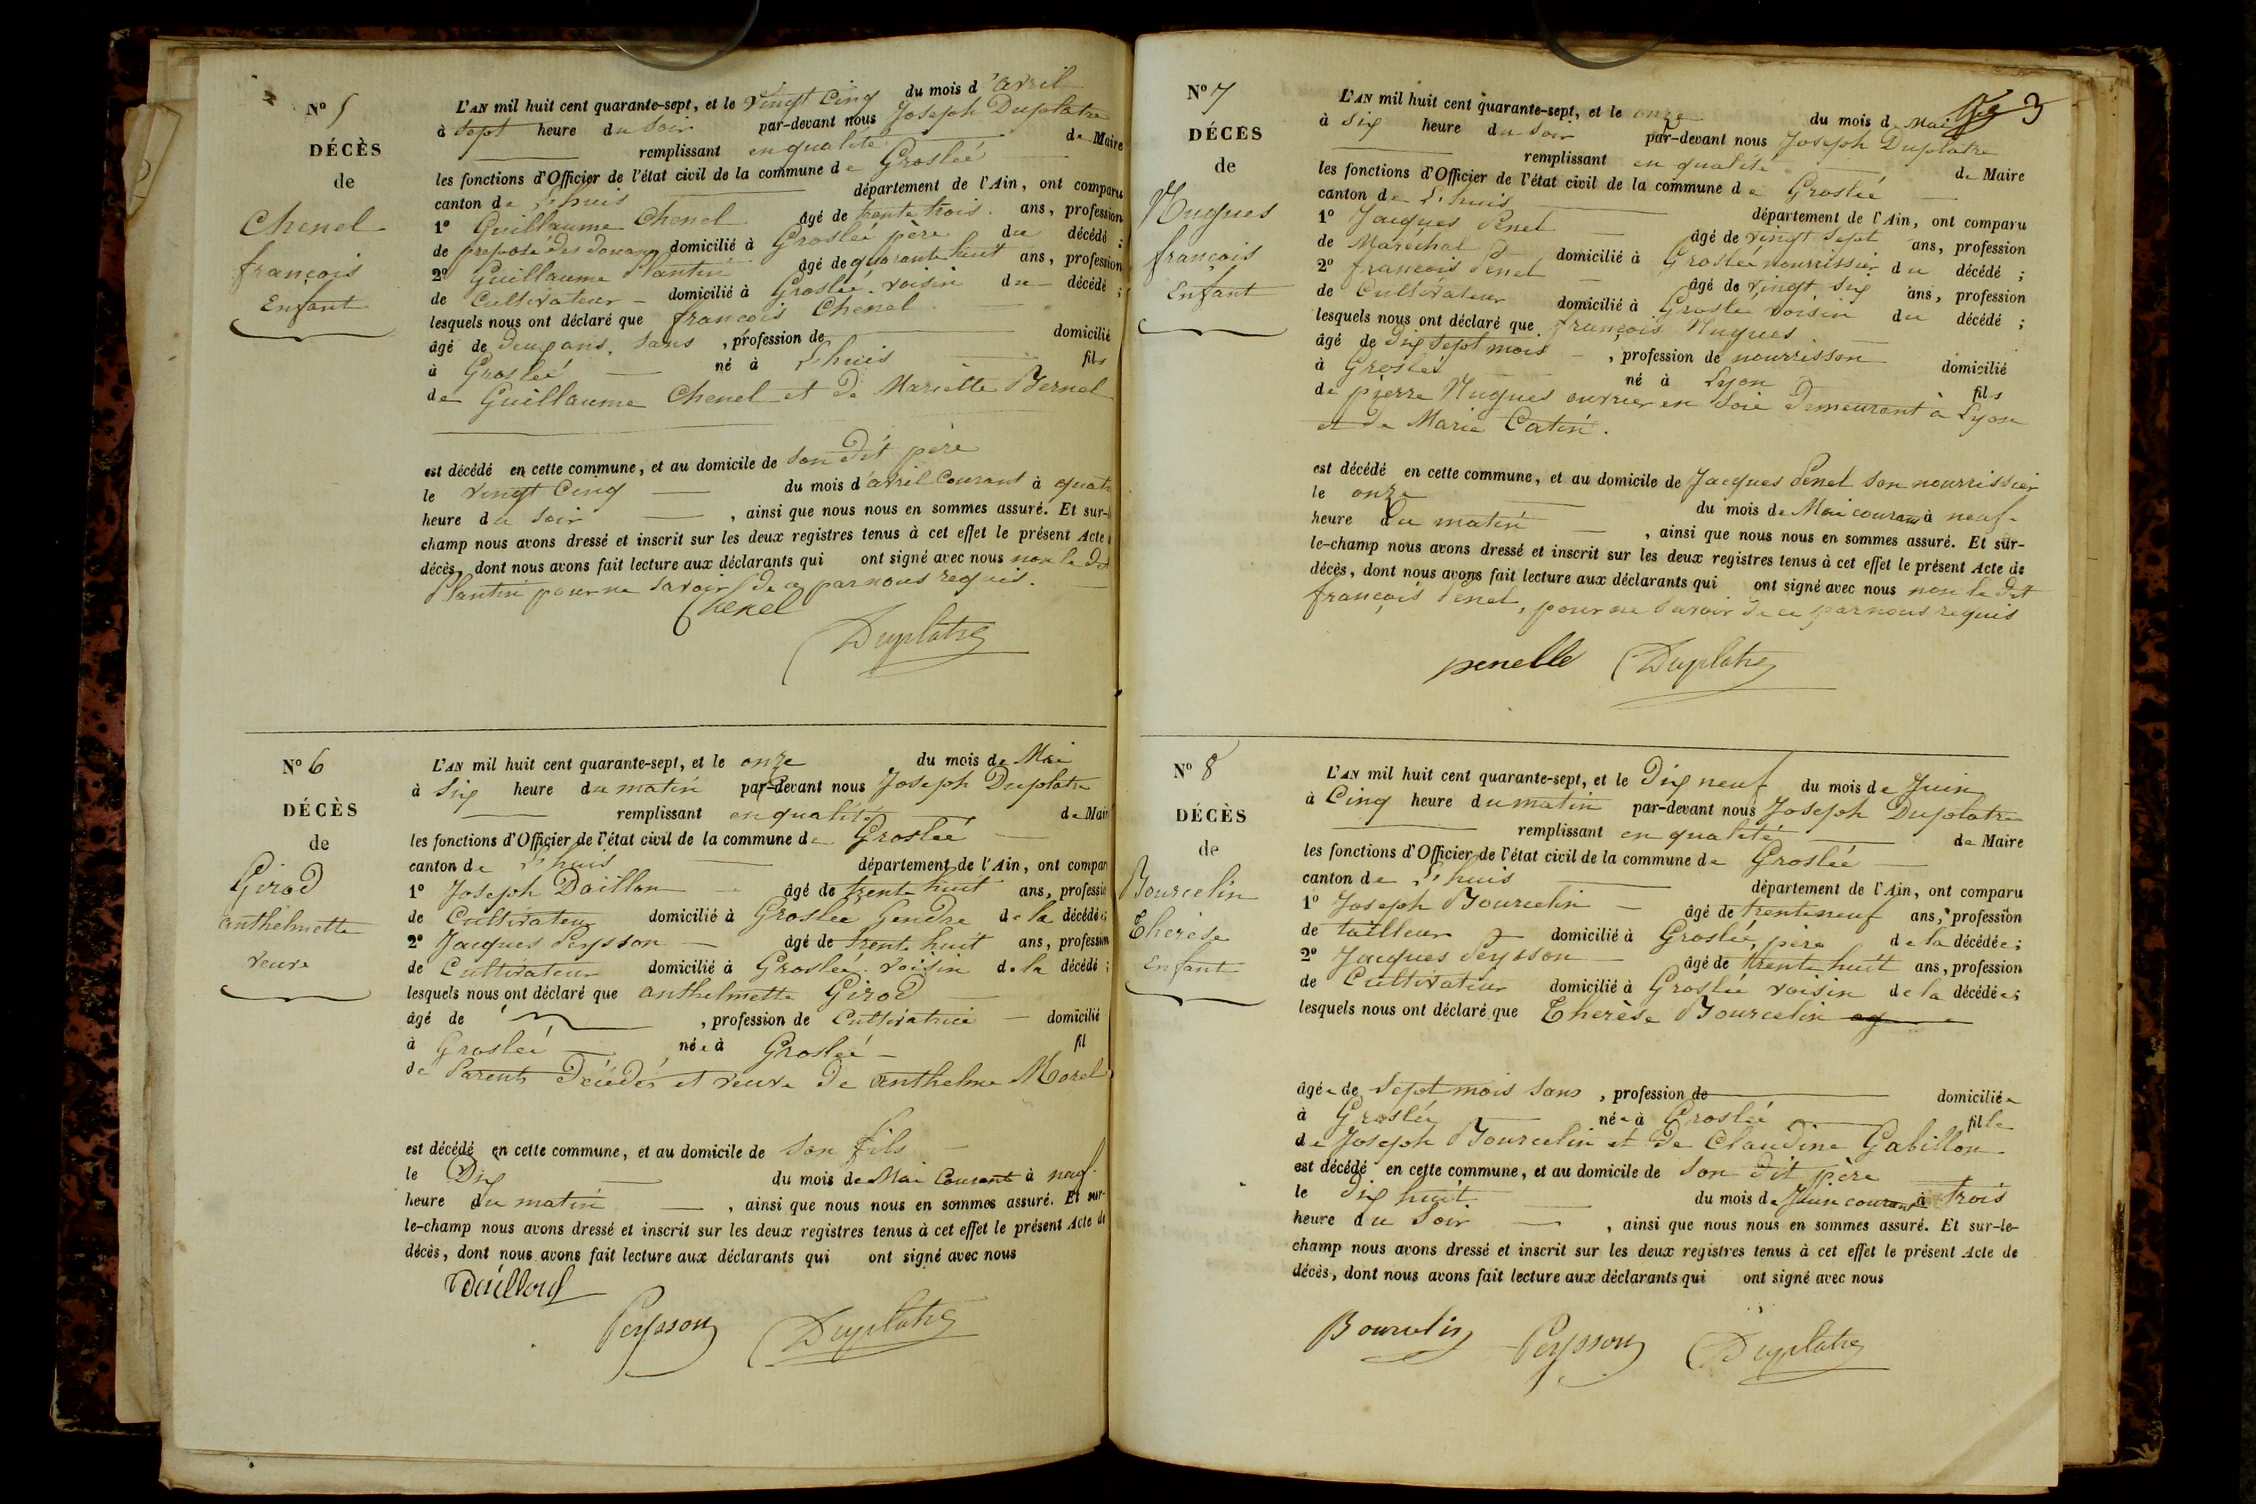 N° 5
DÉCÈS
de
Chenel
françois
Enfant
L'AN mil huit cent quarante-sept, et le vingt Cinq du mois d'avril
à Sept heure du Soir par-devant nous Joseph Duplatre
remplissant en qualité de Maire
les fonctions d'Officier de l'état civil de la commune de Groslée
canton de L'huis département de l'Ain, ont comparu
1° Guillaume Chenel âgé de trente trois ans, profession
de préposé des douanes domicilié à Groslée père du décédé ;
2° Guillaume Plantin âgé de quarante huit ans, profession
de Cultivateur domicilié à Groslée voisin du décédé ;
lesquels nous ont déclaré que françois Chenel
âgé de deux ans, Sans , profession de domicilié
à Groslée né à L'huis fils
de Guillaume Chenel et de Mariette Bernel
est décédé en cette commune, et au domicile de Son dit père
le vingt Cinq du mois d'avril Courant à quatre
heure du Soir , ainsi que nous nous en sommes assuré. Et sur-le-
champ nous avons dressé et inscrit sur les deux registres tenus à cet effet le présent Acte
décès, dont nous avons fait lecture aux déclarants qui ont signé avec nous non le dit
Plantin pour ne Savoir de ce par nous requis.
Chenel
Duplatre
N° 6
DÉCÈS
de
Girod
anthelmette
veuve
L'AN mil huit cent quarante-sept, et le onze du mois de Mai
à Six heure du matin par-devant nous Joseph Duplatre
remplissant en qualité de Maire
les fonctions d'Officier de l'état civil de la commune de Groslée
canton de L'huis département de l'Ain, ont comparu
1° Joseph Daillon âgé de trente huit ans, profession
de Cultivateur domicilié à Groslée Gendre de la décédée ;
2° Jacques Peysson âgé de trente huit ans, profession
de Cultivateur domicilié à Groslée voisin de la décédé ;
lesquels nous ont déclaré que anthelmette Girod
âgé de , profession de Cultivatrice domicilié
à Groslée née à Groslée fil
de Parents Décédés et veuve de anthelme Morel
est décédé en cette commune, et au domicile de Son fils
le Dix du mois de Mai Courant à neuf
heure du matin , ainsi que nous nous en sommes assuré. Et sur-
le-champ nous avons dressé et inscrit sur les deux registres tenus à cet effet le présent Acte de
décès, dont nous avons fait lecture aux déclarants qui ont signé avec nous
Peysson Duplatre
3
N° 7
DÉCÈS
de
Nugues
françois
Enfant
L'AN mil huit cent quarante-sept, et le onze du mois de Mai
à Six heure du Soir par-devant nous Joseph Duplatre
remplissant en qualité de Maire
les fonctions d'Officier de l'état civil de la commune de Groslée
canton de L'huis département de l'Ain, ont comparu
1° Jacques Penel âgé de vingt Sept ans, profession
de Maréchal domicilié à Groslée nourrissier du décédé ;
2° françois Penel âgé de vingt Six ans, profession
de Cultivateur domicilié à Groslée voisin du décédé ;
lesquels nous ont déclaré que françois Nugues
âgé de Dix Sept mois , profession de nourrisson domicilié
à Groslée né à Lyon fils
de pierre Nugues ouvrier en Soie Demeurant à Lyon
et de Marie Catin.
est décédé en cette commune, et au domicile de Jacques Penel Son nourrissier
le onze du mois de Mai courant à neuf
heure du matin , ainsi que nous nous en sommes assuré. Et sur-
le-champ nous avons dressé et inscrit sur les deux registres tenus à cet effet le présent Acte de
décès, dont nous avons fait lecture aux déclarants qui ont signé avec nous non le dit
françois Penel, pour ne Savoir de ce par nous requis
penelle Duplatre
N° 8
DÉCÈS
de
Bourcelin
Thérèse
Enfant
L'AN mil huit cent quarante-sept, et le Dix neuf du mois de Juin
à Cinq heure du matin par-devant nous Joseph Duplatre
remplissant en qualité de Maire
les fonctions d'Officier de l'état civil de la commune de Groslée
canton de L'huis département de l'Ain, ont comparu
1° Joseph Bourcelin âgé de trente neuf ans, profession
de tailleur domicilié à Groslée, père de la décédée ;
2° Jacques Peysson âgé de trente huit ans, profession
de Cultivateur domicilié à Groslée voisin de la décédée ;
lesquels nous ont déclaré que Thérèse Bourcelin
âgée de Sept mois Sans , profession de domiciliée
à Groslée née à Groslée fille
de Joseph Bourcelin et de Claudine Gabillon
est décédé en cette commune, et au domicile de Son dit père
le Dix huit du mois de Juin courant à trois
heure du Soir , ainsi que nous nous en sommes assuré. Et sur-le-
champ nous avons dressé et inscrit sur les deux registres tenus à cet effet le présent Acte de
décès, dont nous avons fait lecture aux déclarants qui ont signé avec nous
Bourcelin Peysson Duplatre